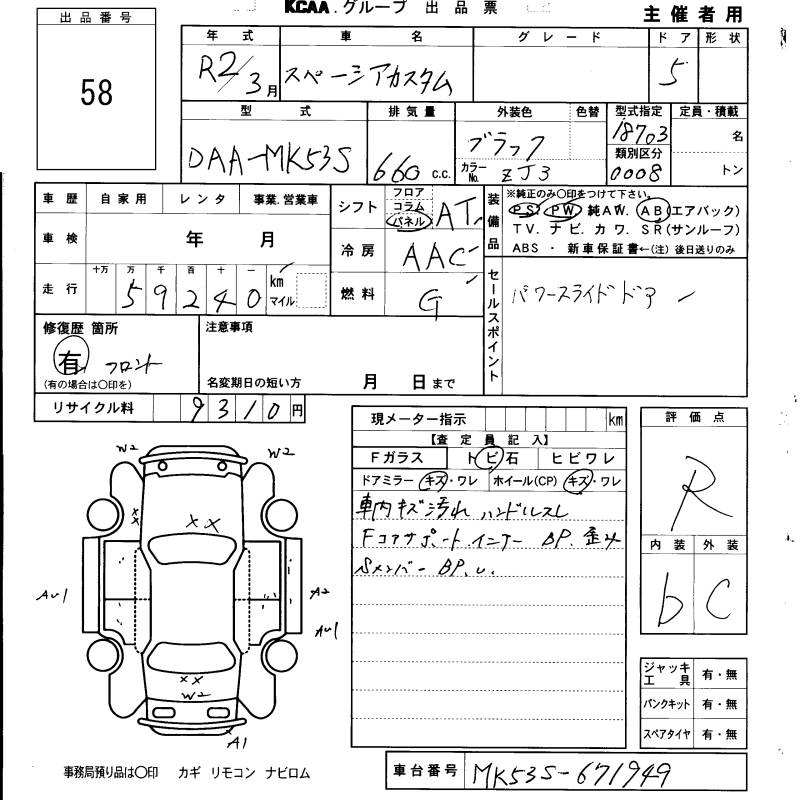 KCAA.グループ 出品票
主催者用
出品番号
58
年式 車名 グレード ドア 形状
R2/3月 スペーシアカスタム 5
型式 排気量 外装色 色替 型式指定 定員・積載
DAA-MK53S 660 c.c. ブラック 18703 名
カラーNo. ZJ3 類別区分 0008 トン
車歴 自家用 レンタ 事業.営業車
車検 年 月
走行 十万 万 千 百 十 一
59240 km マイル
シフト フロア コラム パネル AT
冷房 AAC
燃料 G
装備品 ※純正のみ○印をつけて下さい。
PS. PW. 純AW. AB(エアバック)
TV. ナビ. カワ. SR(サンルーフ)
ABS・新車保証書←(注) 後日送りのみ
セールスポイント
パワースライドドア
修復歴 箇所
有 フロント
(有の場合は○印を)
注意事項
名変期日の短い方 月 日まで
リサイクル料 9310円
現メーター指示 km
【査定員記入】
Fガラス トビ石 ヒビワレ
ドアミラー キズ・ワレ ホイール(CP) キズ・ワレ
車内キズ汚れ ハンドルスレ
Fコアサポート.インナー BP.歪み
Sメンバー BP.u.
評価点
R
内装 外装
b C
W2 W2
××
××
Au1 A2
Au1
××
W2
A1
ジャッキ 工具 有・無
パンクキット 有・無
スペアタイヤ 有・無
事務局預り品は○印 カギ リモコン ナビロム
車台番号 MK53S-671949